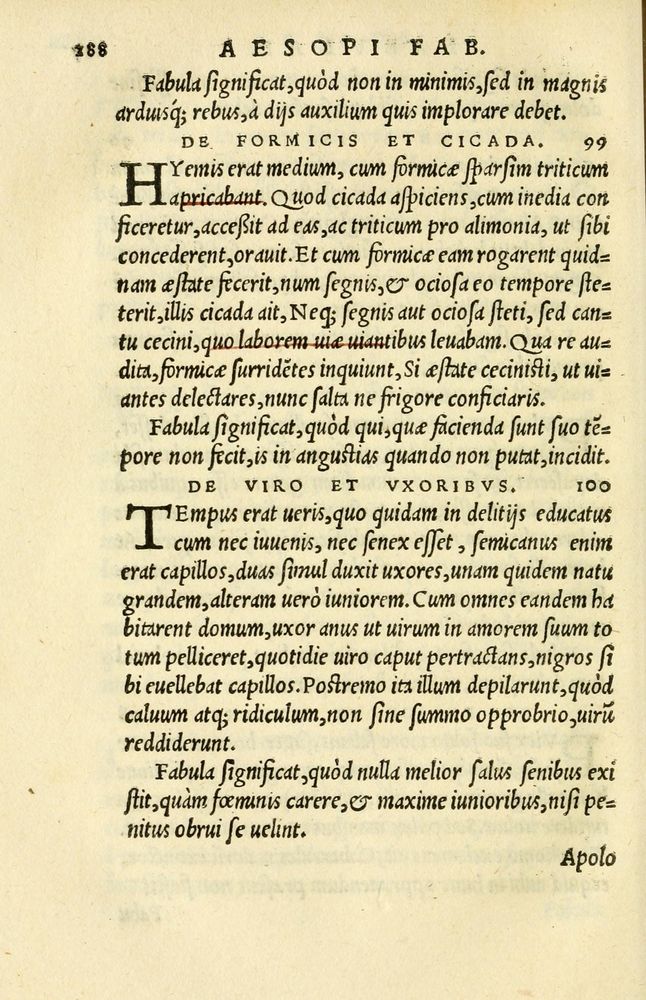 188 AESOPI FAB.
Fabula significat, quòd non in minimis, sed in magnis
arduisq; rebus, à dijs auxilium quis implorare debet.
DE FORMICIS ET CICADA. 99
HYemis erat medium, cum formicæ sparsim triticum
apricabant. Quod cicada aspiciens, cum inedia con
ficeretur, accessit ad eas, ac triticum pro alimonia, ut sibi
concederent, orauit. Et cum formicæ eam rogarent quid=
nam æstate fecerit, num segnis, & ociosa eo tempore ste=
terit, illis cicada ait, Neq; segnis aut ociosa steti, sed can=
tu cecini, quo laborem uiæ uiantibus leuabam. Qua re au=
dita, formicæ surridẽtes inquiunt, Si æstate cecinisti, ut ui=
antes delectares, nunc salta ne frigore conficiaris.
Fabula significat, quòd qui, quæ facienda sunt suo tẽ=
pore non fecit, is in angustias quando non putat, incidit.
DE VIRO ET VXORIBVS. 100
TEmpus erat ueris, quo quidam in delitijs educatus
cum nec iuuenis, nec senex esset, semicanus enim
erat capillos, duas simul duxit uxores, unam quidem natu
grandem, alteram uerò iuniorem. Cum omnes eandem ha
bitarent domum, uxor anus ut uirum in amorem suum to
tum pelliceret, quotidie uiro caput pertractans, nigros si
bi euellebat capillos. Postremo ita illum depilarunt, quòd
caluum atq; ridiculum, non sine summo opprobrio, uirũ
reddiderunt.
Fabula significat, quòd nulla melior salus senibus exi
stit, quàm fœminis carere, & maxime iunioribus, nisi pe=
nitus obrui se uelint.
Apolo